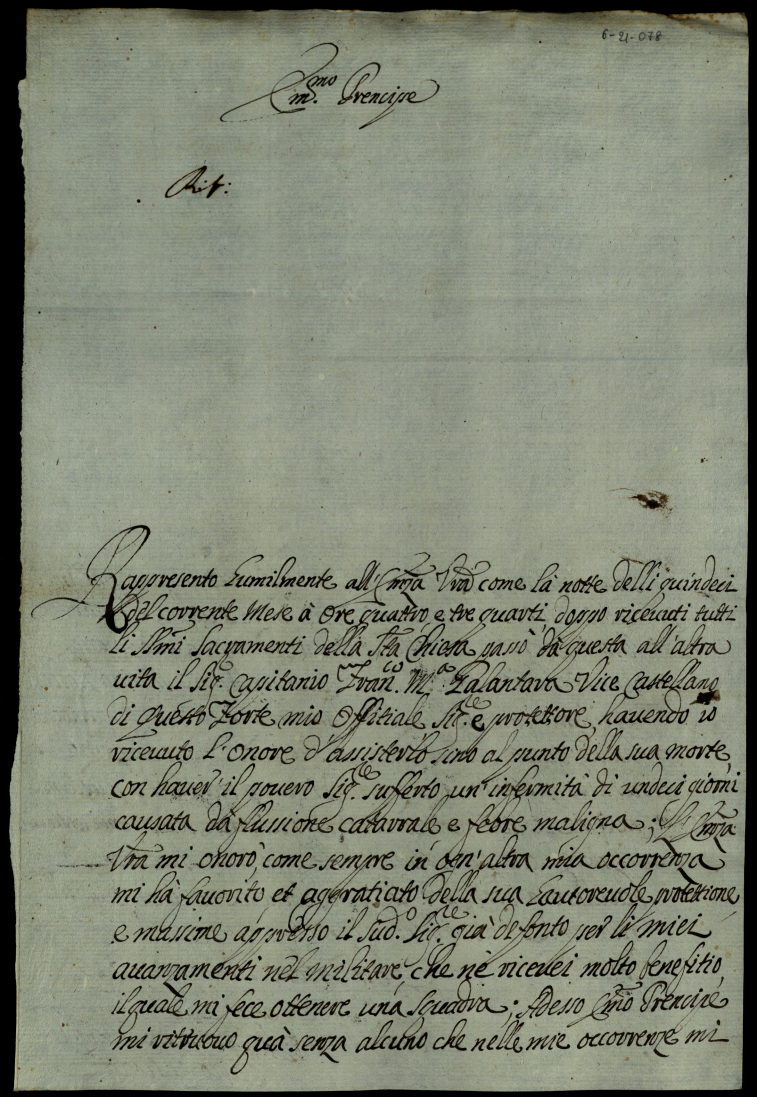 6-21-078
Em.mo Prencipe
Ris:
Rappresento humilmente all'Emza Vra come la notte delli quindeci
del corrente Mese à Ore quattro e tre quarti, doppo ricevuti tutti
li SSmi Sacramenti della Sta Chiesa passò da questa all'altra
vita il Sig.re Capitanio Fran.co M.a Palantara Vice Castellano
di questo Forte mio Offitiale Sig.re e protettore, havendo io
ricevuto l'onore d'assisterlo sino al punto della sua morte,
con haver' il povero Sig.re sufferto un'infermità di undeci giorni
causata da flussione catarrale e febre maligna; Emza
Vra mi onorò come sempre in ogn'altra mia occorrenza
mi hà favorito et aggratiato della sua autorevole protettione
e massime appresso il sud.o Sig.re già defonto per li miei
avanzamenti nel militare, che ne ricevei molto benefitio,
il quale mi fece ottenere una squadra; Adesso Emo Prencipe
mi ritruovo quà senza alcuno che nelle mie occorrenze mi